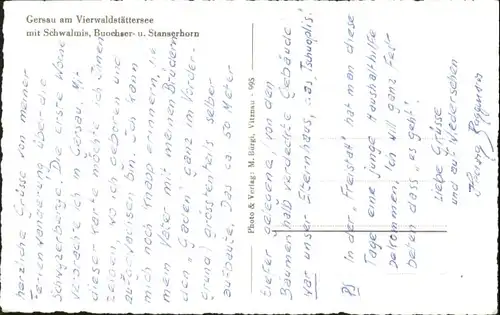 Gersau am Vierwaldstättersee
mit Schwalmis, Buochser- u. Stanserhorn
herzliche Grüsse von meiner
Ferienwanderung über die
Schwyzerberge. Die erste Woche
verbrachte ich in Gersau. Mit
dieser Karte möchte ich Ihnen
zeigen, wo ich geboren und
aufgewachsen bin. Ich kann
mich noch knapp erinnern, wie
mein Vater mit meinen Brüdern
den „Gaden" ganz im Vorder-
grund grösstenteils selber
aufbaute. Das ca 50 Meter
Photo & Verlag: M. Bürgi, Vitznau - 995
tiefer gelegene, von den
Bäumen halb verdeckte Gebäude
war unser Elternhaus, das
PS In der „Freistatt" hat man diese
Tage eine junge Haushalthilfe
bekommen. Ich will ganz fest
beten dass es geht.
Liebe Grüsse
und auf Wiedersehen